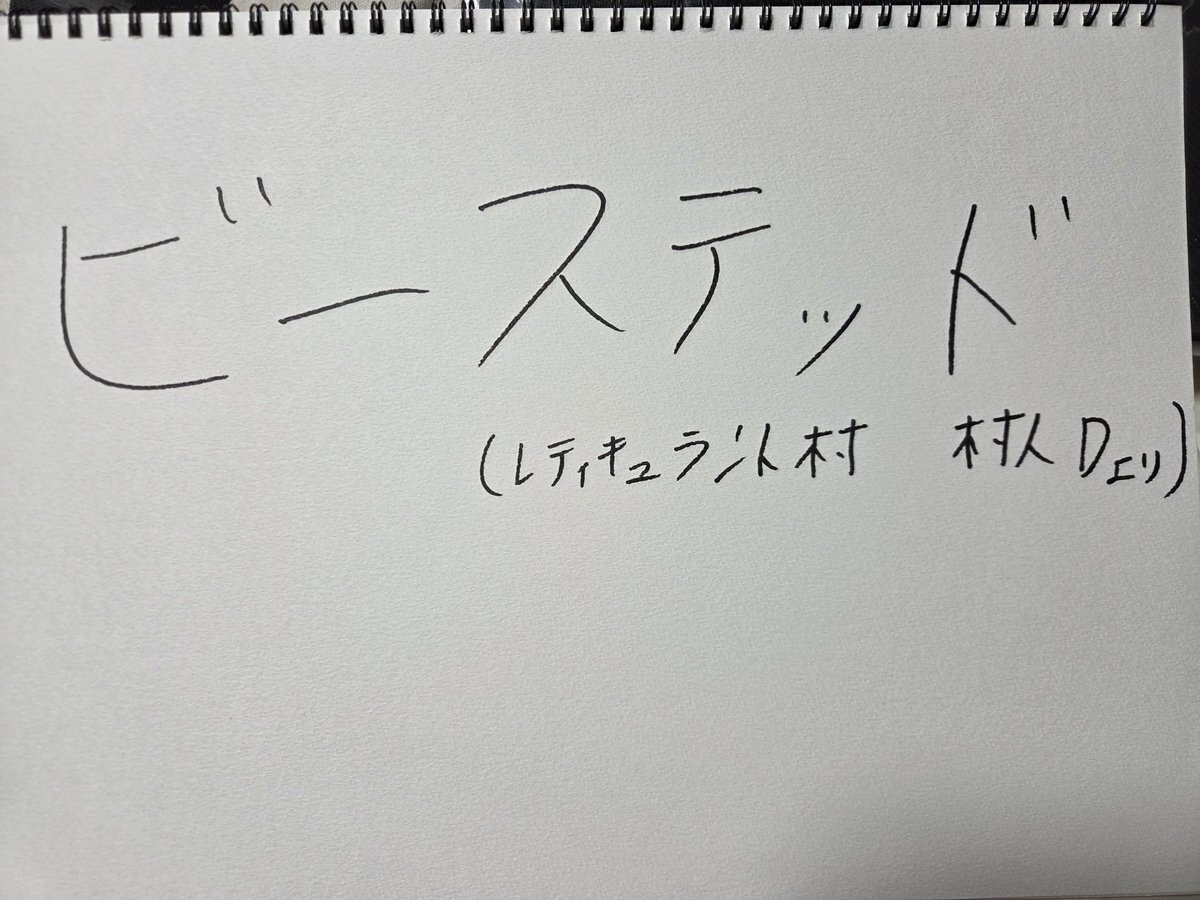 ビーステッド
(レティキュラント村 村人Dエリ)